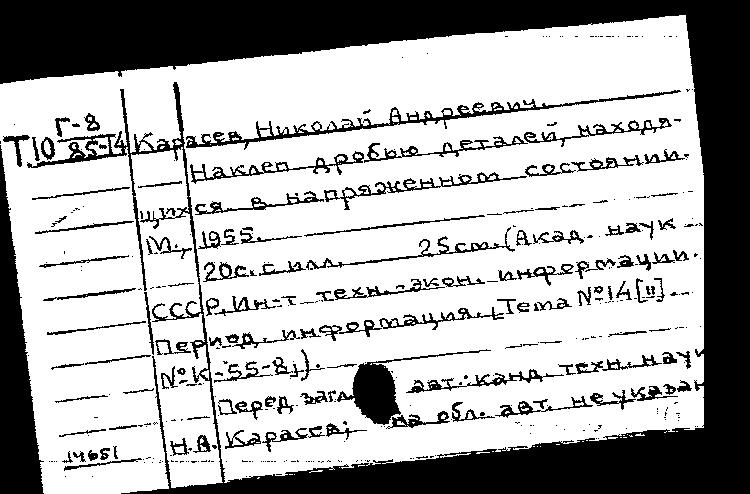 Г-8
Т.10 85-14 Карасев, Николай Андреевич.
Наклеп дробью деталей, находя-
щихся в напряженном состоянии.
М., 1955.
20с. с илл. 25см. (Акад. наук
СССР. Ин-т техн.-экон. информации.
Период. информация. Тема №14[II].
№К-55-8;).
Перед загл. авт.: канд. техн. наук
Н.А. Карасев; на обл. авт. не указан
14651